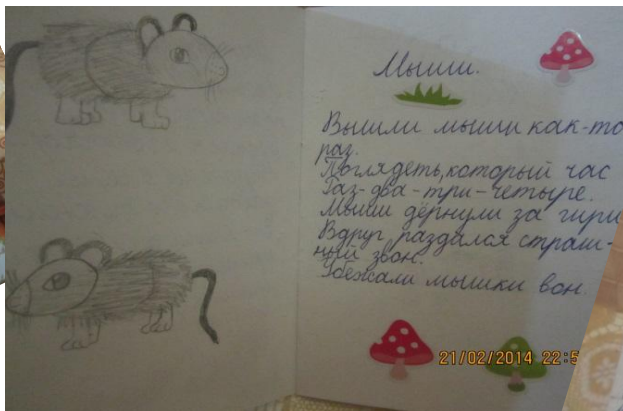 Мыши.
Вышли мыши как-то
раз.
Поглядеть, который час
Раз-два-три-четыре.
Мыши дёрнули за гири
Вдруг раздался страш-
ный звон.
Убежали мышки вон.
21/02/2014 22:5